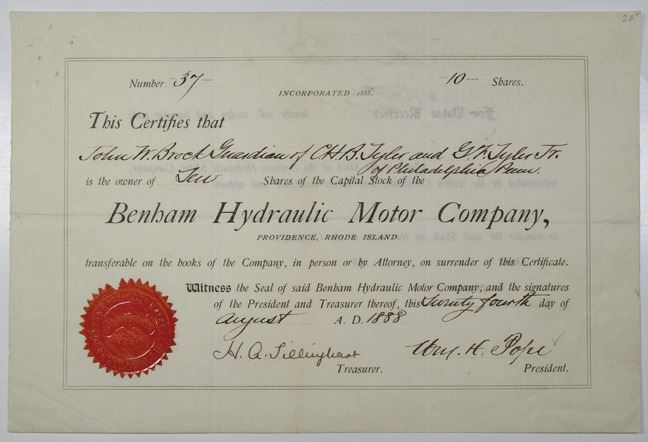 20⁰⁰
Number 37 10 Shares.
INCORPORATED 1888.
For Value Received
This Certifies that
John W. Brock Guardian of C H B. Tyler and G. F. Tyler Jr.
of Philadelphia Penn.
is the owner of Ten Shares of the Capital Stock of the
Benham Hydraulic Motor Company,
PROVIDENCE, RHODE ISLAND.
transferable on the books of the Company, in person or by Attorney, on surrender of this Certificate.
Witness the Seal of said Benham Hydraulic Motor Company, and the signatures
of the President and Treasurer thereof, this Twenty fourth day of
August A. D. 1888
H. A. Tillinghast Wm. H. Pope
Treasurer. President.